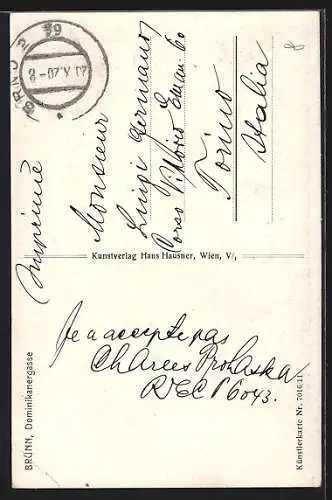 BRNO 2
59
Imprimé
Monsieur
Luigi Germano
Corso Vittorio Eman. 60
Torino
Italia
Kunstverlag Hans Hausner, Wien, V/1
Je accepte pas
Charles Prohaska
BRÜNN, Dominikanergasse
Künstlerkarte Nr. 7016/11